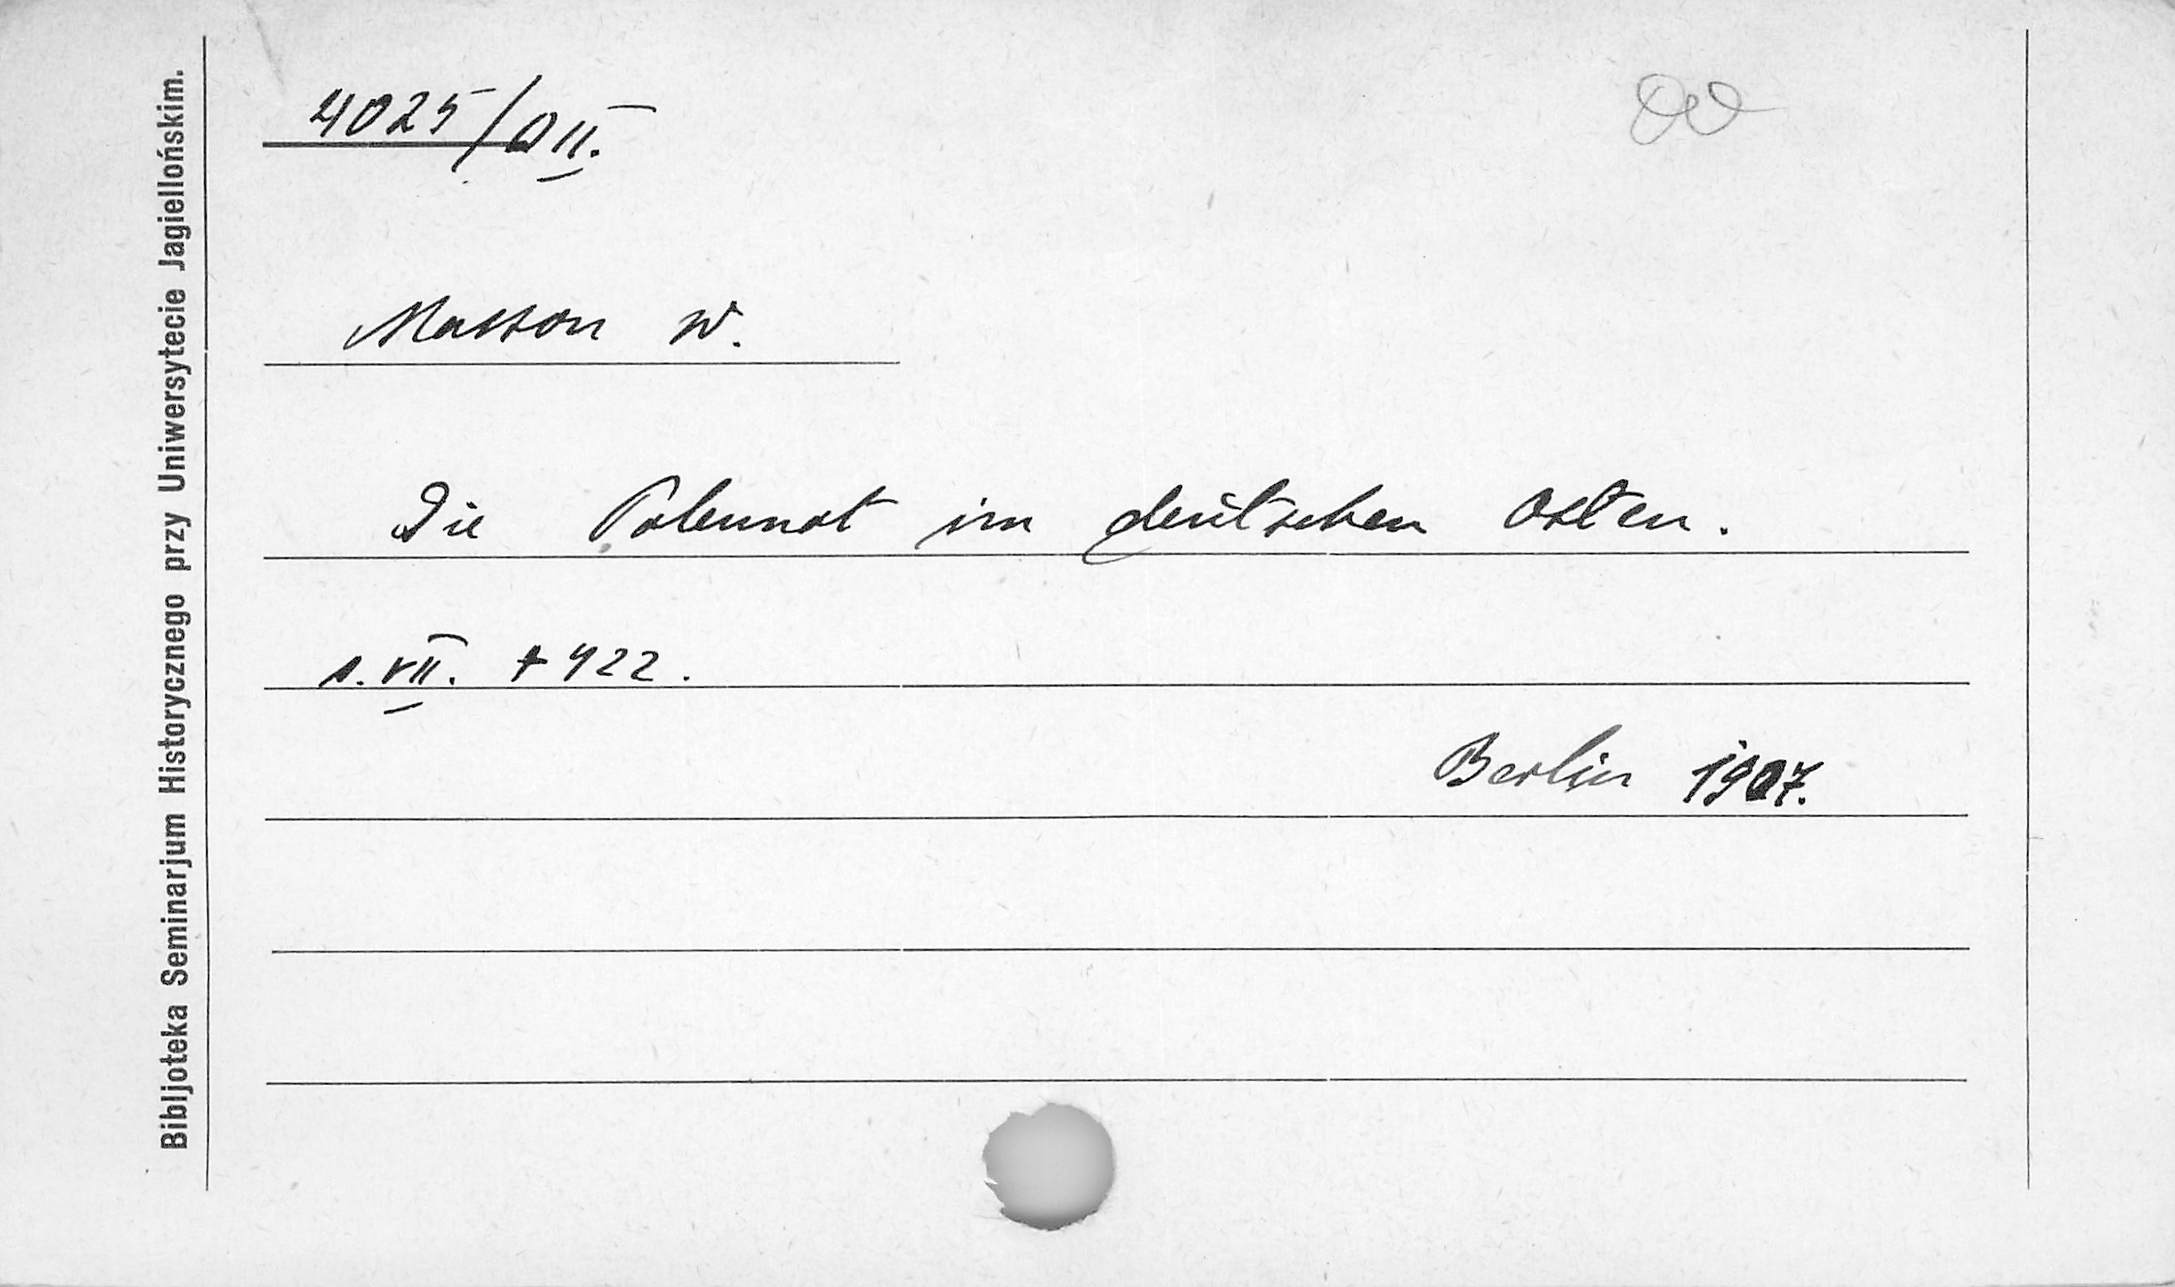 4025/DII.
Masson W.
Die Polennot im deutschen Osten.
s. VII. + 422.
Berlin 1907.
Bibljoteka Seminarjum Historycznego przy Uniwersytecie Jagiellońskim.